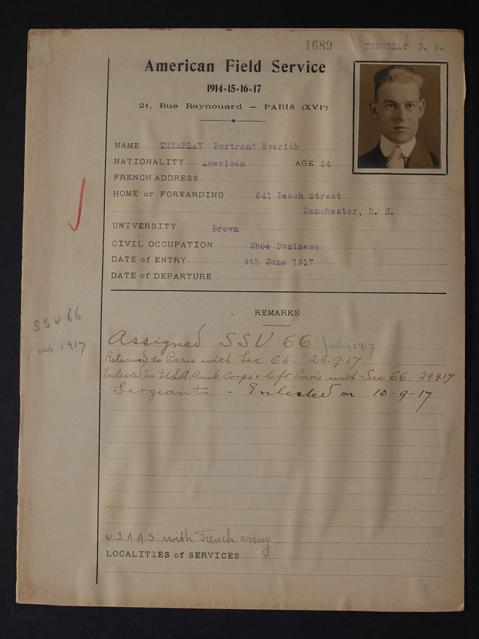 1689 TREMBLAY B. E.
American Field Service
1914-15-16-17
21, Rue Raynouard — PARIS (XVIᵉ)
NAME TREMBLAY Bertrand Evarick
NATIONALITY American AGE 24
FRENCH ADDRESS
HOME or FORWARDING 641 Beech Street
Manchester, N. H.
UNIVERSITY Brown
CIVIL OCCUPATION Shoe Business
DATE of ENTRY 9th June 1917
DATE of DEPARTURE
REMARKS
SSU 66
1917
Assigned SSU 66 July 1917
Returned to Paris with Sec 66. 26.9.17
Enlisted in U.S.A. Amb. Corps & left Paris with Sec 66 29.9.17
Sergeant - Enlisted on 10-9-17
U.S.A.A.S. with French army
LOCALITIES of SERVICES